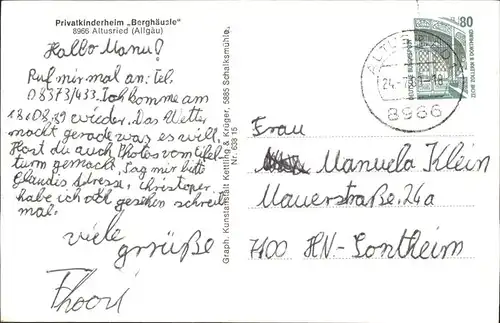 Privatkinderheim „Berghäusle"
8966 Altusried (Allgäu)
Hallo Manu!
Ruf mir mal an: Tel.
08373/433. Ich komme am
18.08.89 wieder. Das Wetter
macht gerade was es will.
Hast du auch Photos vom Eifel-
turm gemacht. Sag mir bitte
Claudis Adresse. Christoper
habe ich oft gesehen schreib
mal.
viele
grrüße
Graph. Kunstanstalt Kettling & Krüger, 5885 Schalksmühle,
Nr. 638 15
80
DEUTSCHE BUNDESPOST
ZECHE ZOLLERN II DORTMUND
8966
Frau
Manuela Klein
Mauerstraße 24a
7100 HN-Sontheim